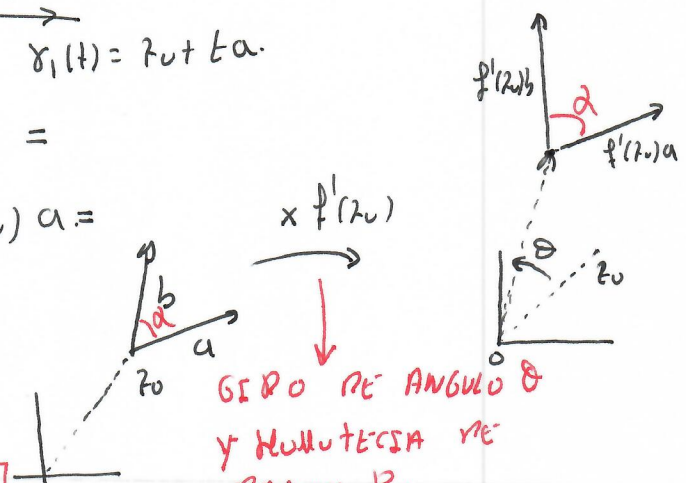 γ₁(t) = z₀ + ta.
=
) a =
b
α
a
z₀
x f'(z₀)
GIRO DE ANGULO θ
Y HOMOTECIA DE
f'(z₀)b
α
f'(z₀)a
θ
z₀
0